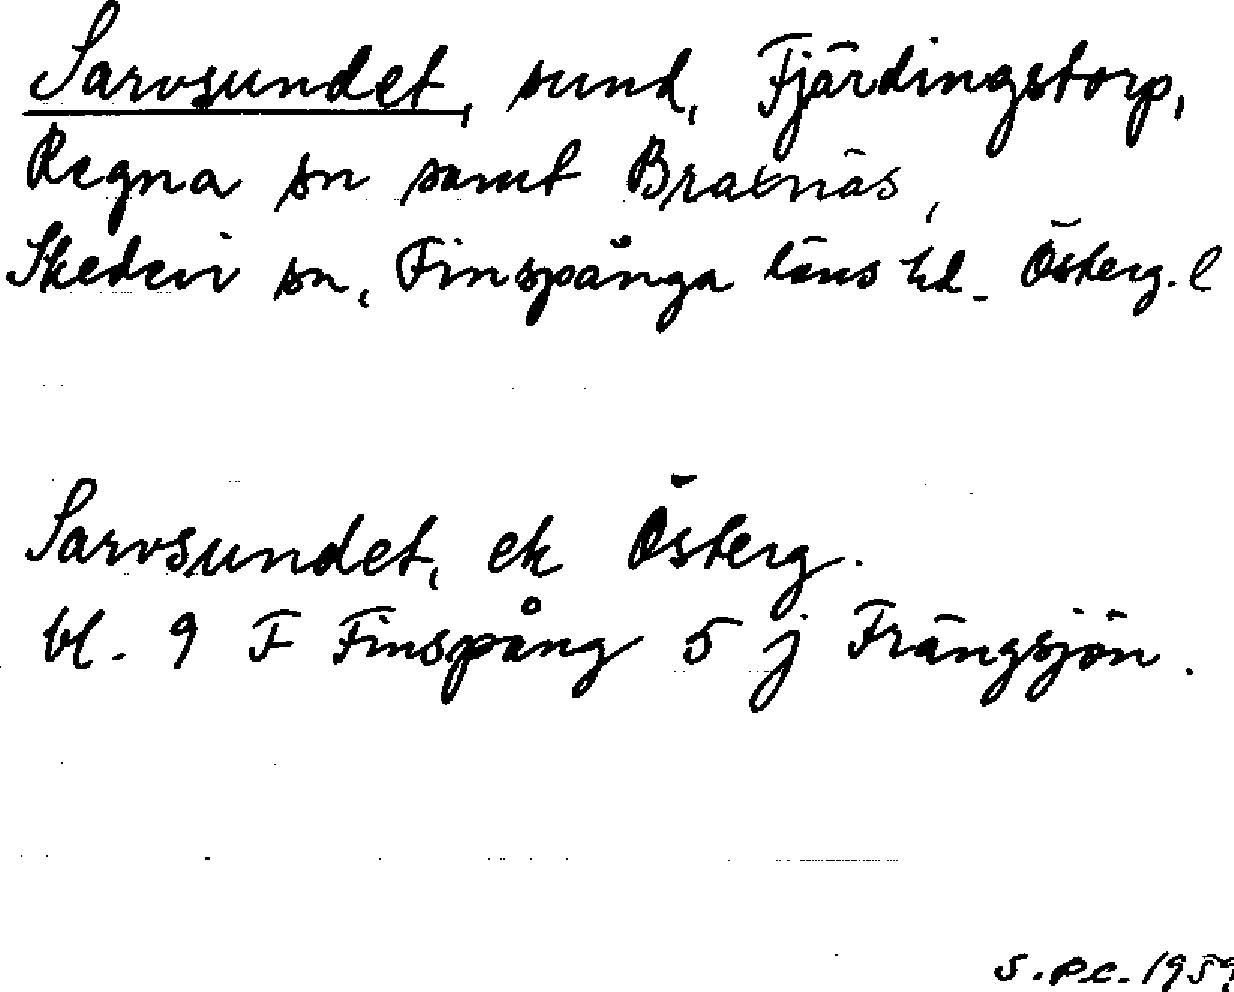 Sarvsundet, sund, Fjärdingstorp,
Regna sn samt Braxnäs,
Skedevi sn, Finspånga läns hd. Österg. l
Sarvsundet, ek Österg.
bl. 9 F Finspång 5 j Frängsjön.
S.P.C. 1959